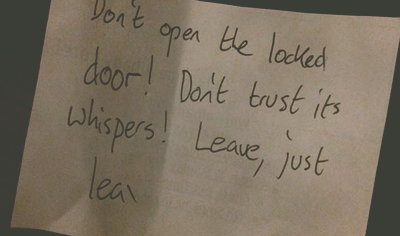 Don't open the locked
door! Don't trust its
whispers! Leave, just
lea